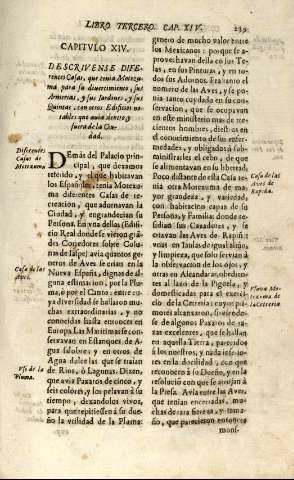 LIBRO TERCERO. CAP. XIV.
239
CAPITVLO XIV.
DESCRIVENSE DIFE-
rentes Casas, que tenia Motezu-
ma para su divertimiento, sus
Armerias, y sus Jardines, y sus
Quintas, con otros Edificios no-
tables que avia dentro, y
fuera de la Ciu-
dad.
Diferentes
Casas de
Motezuma.
DEmás del Palacio prin-
cipal, que dexamos
referido, y el que habitavan
los Españoles, tenia Motezu-
ma diferentes Casas de re-
creacion, que adornavan la
Ciudad, y engrandecian su
Persona. En vna dellas (Edifi-
cio Real donde se vieron gran-
des Corredores sobre Colum-
nas de Iaspe) avia quantos ge-
neros de Aves se crian en la
Nueva España, dignas de al-
guna estimacion, por la Plu-
ma, ò por el Canto: entre cu-
ya diversidad se hallaron mu-
chas extraordinarias, y no
conocidas hasta entonces en
Europa. Las Maritimas se con-
servavan en Estanques de A-
gua salobre; y en otros de
Agua dulce las que se traían
de Rios, ò Lagunas. Dizen,
que avia Paxaros de cinco, y
seis colores, y los pelavan à su
tiempo, dexandolos vivos,
para que repitiessen à su due-
ño la vtilidad de la Pluma:
Casa de las
Aves.
Vso de la
Pluma.
genero de mucho valor entre
los Mexicanos: por que se a-
provechavan della en sus Te-
las, en sus Pinturas, y en to-
dos sus Adornos. Era tanto el
numero de las Aves, y se po-
nia tanto cuydado en su con-
servacion, que se ocupavan
en este ministerio mas de tre-
cientos hombres, diestros en
el conocimiento de sus enfer-
medades, y obligados à sub-
ministrarles el cebo, de que
se alimentavan en su libertad.
Poco distante de esta Casa te-
nia otra Motezuma de ma-
yor grandeza, y variedad,
con habitacion capaz de su
Persona, y Familia: donde re-
sidian sus Cazadores, y se
criavan las Aves de Rapiña:
vnas en Iaulas de igual aliño,
y limpieza, que solo servian à
la observacion de los ojos; y
otras en Alcandaras, obedien-
tes al lazo de la Pigüela, y
domesticadas para el exerci-
cio de la Cetreria; cuyos pri-
mores alcançaron, sirviendo-
se de algunos Paxaros de ra-
zas excelentes, que se hallan
en aquella Tierra, parecidos
à los nuestros, y nada inferio-
res en la docilidad, con que
reconocen à su Dueño, y en la
resolucion con que se arrojan à
la Presa. Avia entre las Aves,
que tenian encerradas, mu-
chas de rara fiereza, y tama-
ño, que parecieron entonces
mons-
Casa de las
Aves de
Rapiña.
la Cetreria